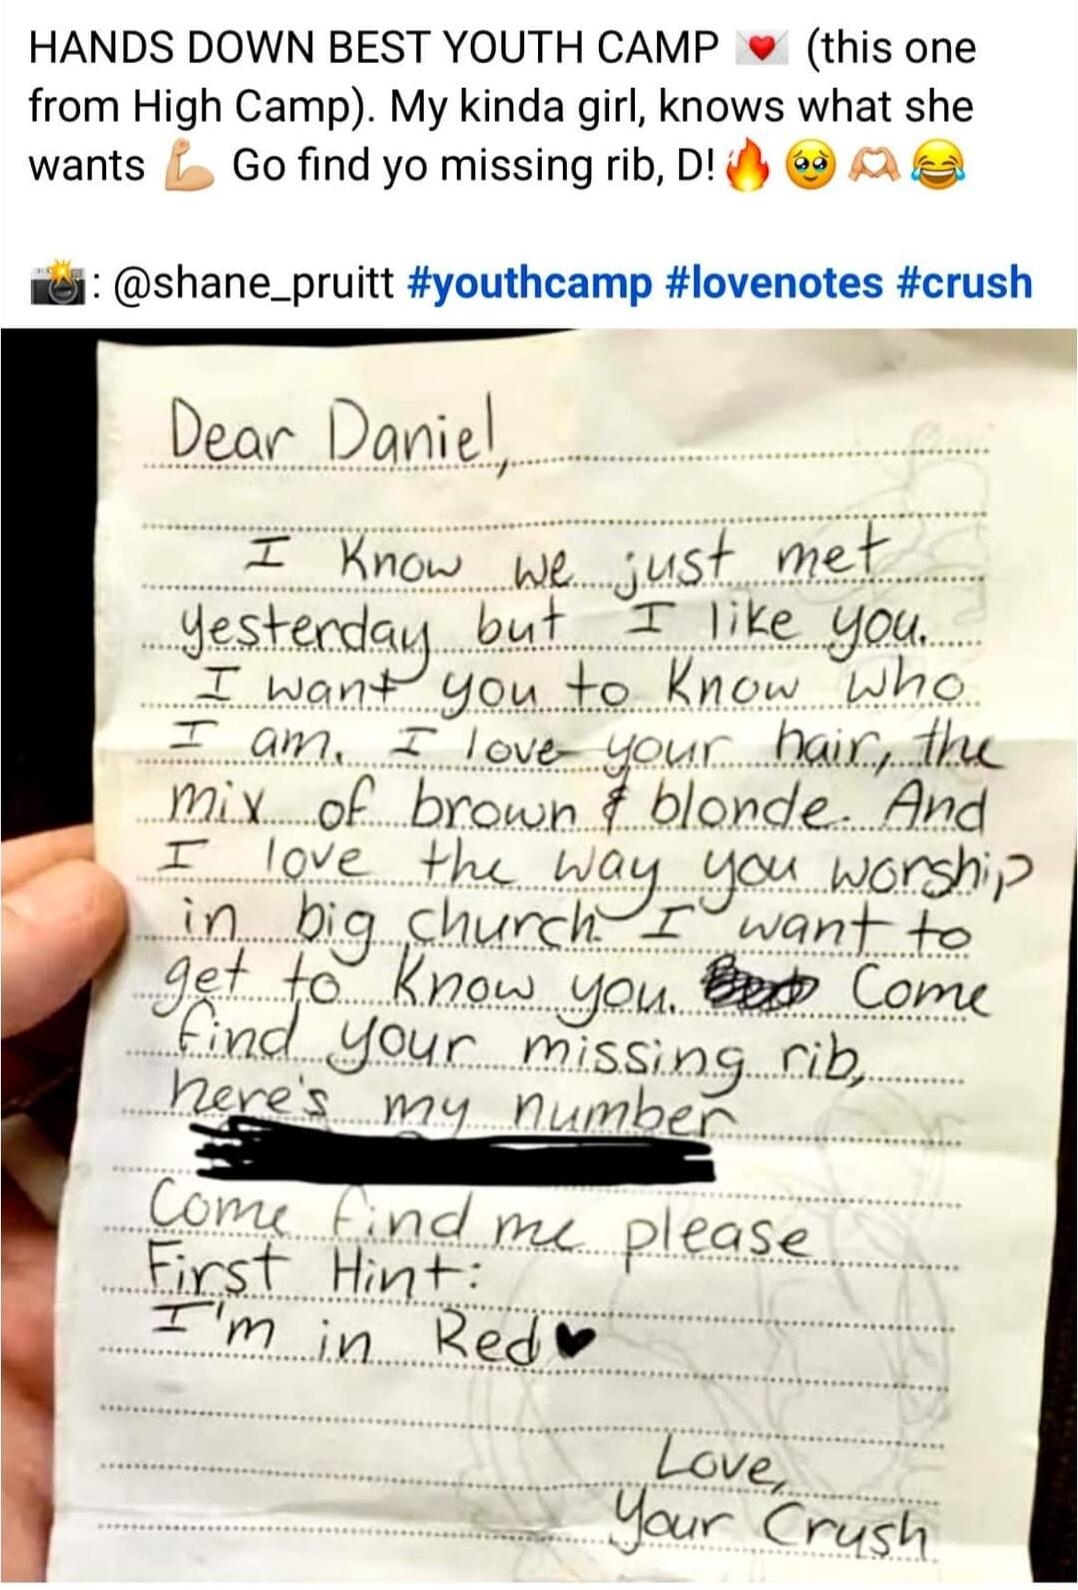 HANDS DOWN BEST YOUTH CAMP 💌 (this one
from High Camp). My kinda girl, knows what she
wants 💪🏼 Go find yo missing rib, D!🔥 🥹 🫶🏼 😂
📸: @shane_pruitt #youthcamp #lovenotes #crush
Dear Daniel,
I know we just met
yesterday but I like you.
I want you to know who
I am. I love your hair, the
mix of brown & blonde. And
I love the way you worship
in big church. I want to
get to know you. Come
find your missing rib,
here's my number
Come find me please
First Hint:
I'm in Red ♥
Love,
Your Crush